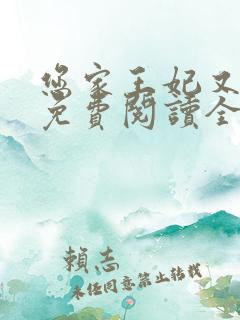 您家王妃又
免費閱讀全
賴志
未经同意禁止转载